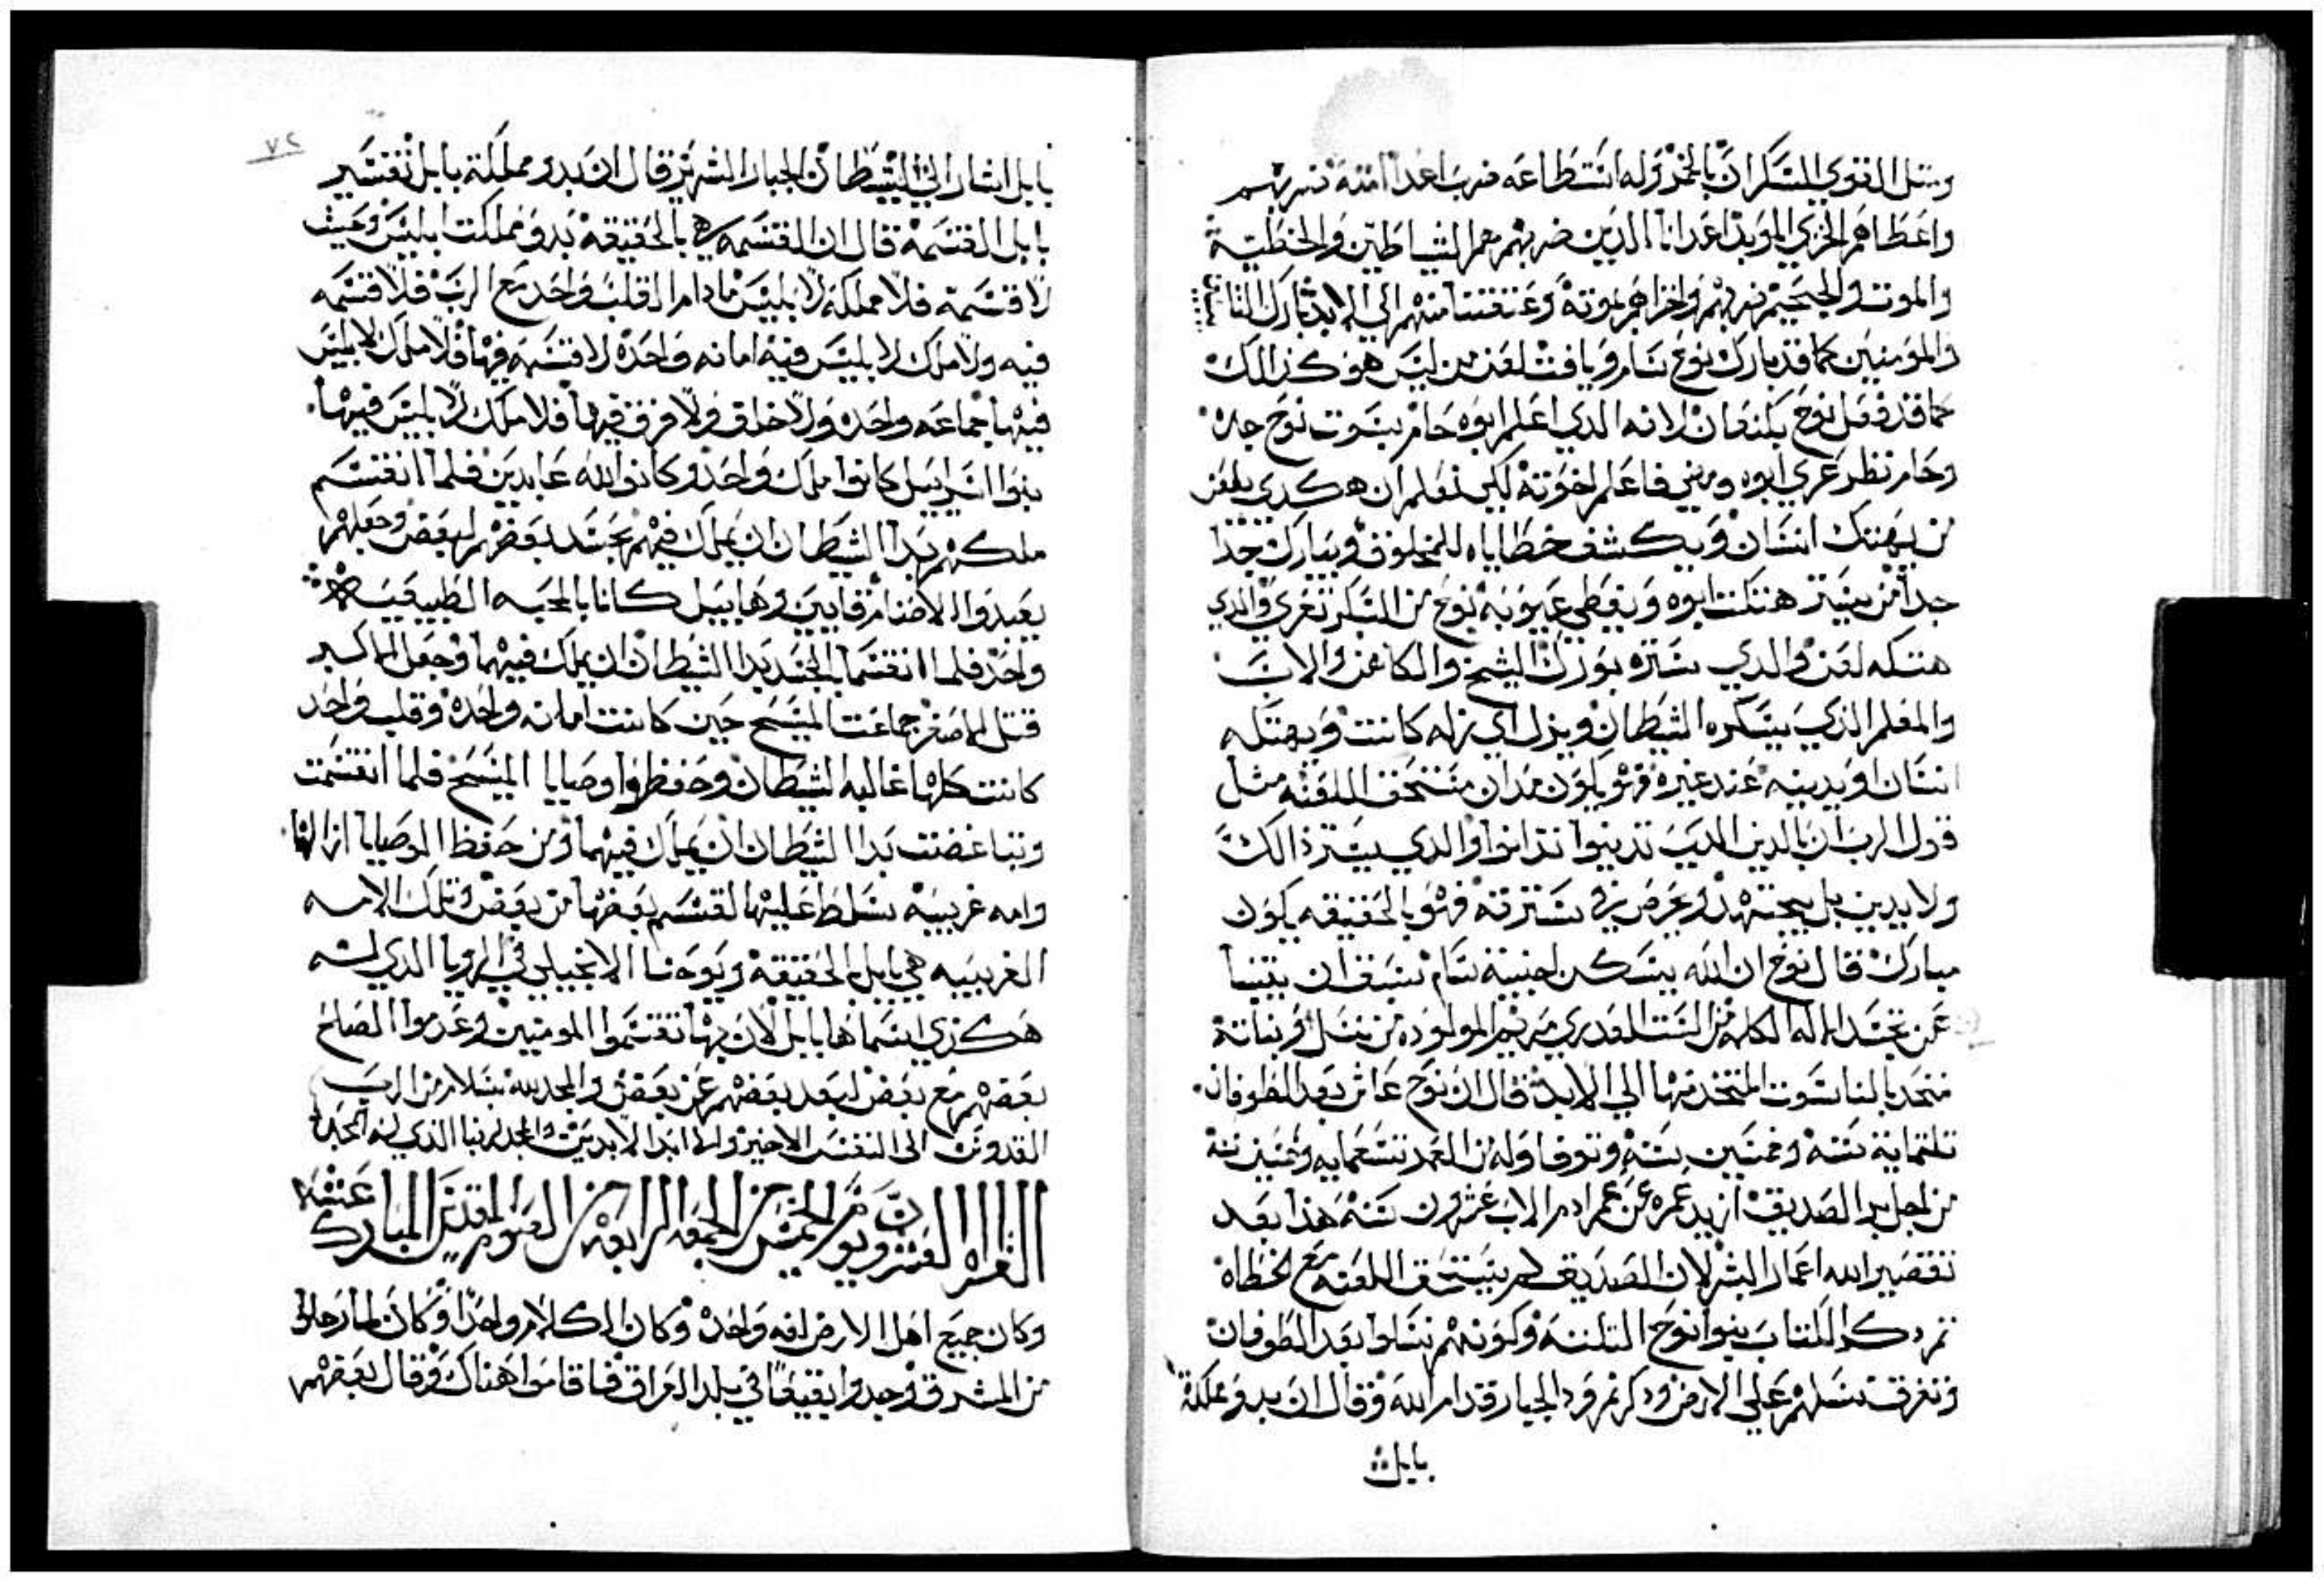 ومثل القوي السكران بالخمر وله استطاعه ضرب اعدا امته ضربهم
واعطاهم الخزي الموبد اعدانا الدين ضربهم هم الشياطين والخطية
والموت والجحيم ضربهم واخزاهم بموته وعتقنا منهم الي الابد بارك
والمومنين كما قد بارك نوح سام ويافت لعن من ليس هو كذالك
كما قد فعل نوح بكنعان لانه الدي اعلم ابوه حام بسوت نوح جده
وحام نظر عري ابوه ومضي فاعلم اخوته لكي نعلم ان هكدي يلعن
من يهتك انسان ويكشف خطاياه للمخلوق ويبارك جدا
جدا من يستر هتكت ابوه ويغطي عيوبه نوح من السكر تعري والدي
هتكه لعن والدي ستره بورك الشيخ والكاهن والاب
والمعلم الذي يسكره الشيطان ويزل اي زله كانت ويهتكه
انسان او يدينه عند غيره فهو يكون مدان مستحق اللعنه مثل
قول الرب ان بالدين الدي تدينوا تدانوا والدي يستر ذالك
ولا يدين بل يجتهد ويحرص في سترته فهو بالحقيقه يكون
مبارك قال نوح ان الله يسكن اخبية سام سبق ان يتنبا
عن تجسد الاله الكلمه من الست العدري مريم المولوده من نسل وبناته
متحد بالناسوت المتخد منها الي الابد قال ان نوح عاش بعد الطوفان
تلتماية سنة وخمسين سنه وتوفا وله من العمر تسعمايه وخمسين سنة
من اجل بر الصديق ازيد عمره عن عمر ادم الاب عشرون سنه هذا بعد
تقصير الله اعمار البشر لان الصديق لم يستحق اللعنه مع الخطاه
تم دكر الكتاب بنوا نوح التلته وكونهم نسلوا بعد الطوفان
وتفرق نسلهم علي الارض ودكر نمرود الجبار قدام الله وقال ان بدو مملكة
بابل
٧٢
بابل اشار الي الشيطان الجبار الشرير قال ان بدو مملكة بابل تفسير
بابل القسمة قال ان القسمه هي بالحقيقة بدو مملكت ابليس وحيث
لا قسمة فلا مملكة لابليس مادام القلب واحد مع الرب فلا قسمه
فيه ولا ملك لابليس فيه امانه واحده لا قسمه فيها فلا ملك لابليس
فيها جماعه واحده ولا خلق ولا فرق فيها فلا ملك لابليس فيها
بنوا اسراييل كانوا ملك واحد وكانوا لله عابدين فلما انقسم
ملكهم بدا الشيطان ان يملك فيهم بحسد بعضهم لبعض وجعلهم
يعبدوا الاصنام قايين وهابيل كانا بالمحبه الطبيعيه
واحد فلما انقسما بالحسد بدا الشيطان ان يملك فيهما وجعل الاكبر
قتل الاصغر جماعت المسيح حين كانت امانه واحده وقلب واحد
كانت كلها غالبه الشيطان وحفظوا وصايا المسيح فلما انقسمت
وتباغضت بدا الشيطان ان يملك فيهما ومن حفظ الوصايا ازالها
وامه غريبيه سلط عليها لقسم بعضها من بعض وتلك الامه
الغريبيه هي بابل الحقيقة ويوحنا الانجيلي في الرويا الدي له
هكذي اسماها بابل لان بها تقسموا المومنين وعدموا الصلح
بعضهم مع بعض لبعد بعضهم عن بعض والمجد لله بسلام من الرب
القدوس الى النفس الاخير والى ابد الابدين والمجد لربنا الذي له المجد
القراه العشرون يوم الخميس من الجمعه الرابعه من الصوم المقدس المبارك عشيه
وكان جميع اهل الارض لغه واحده وكان الكلام واحدا وكان لما رحلوا
من المشرق وجدوا بقيعا في بلد العراق فاقاموا هناك وقال بعضهم